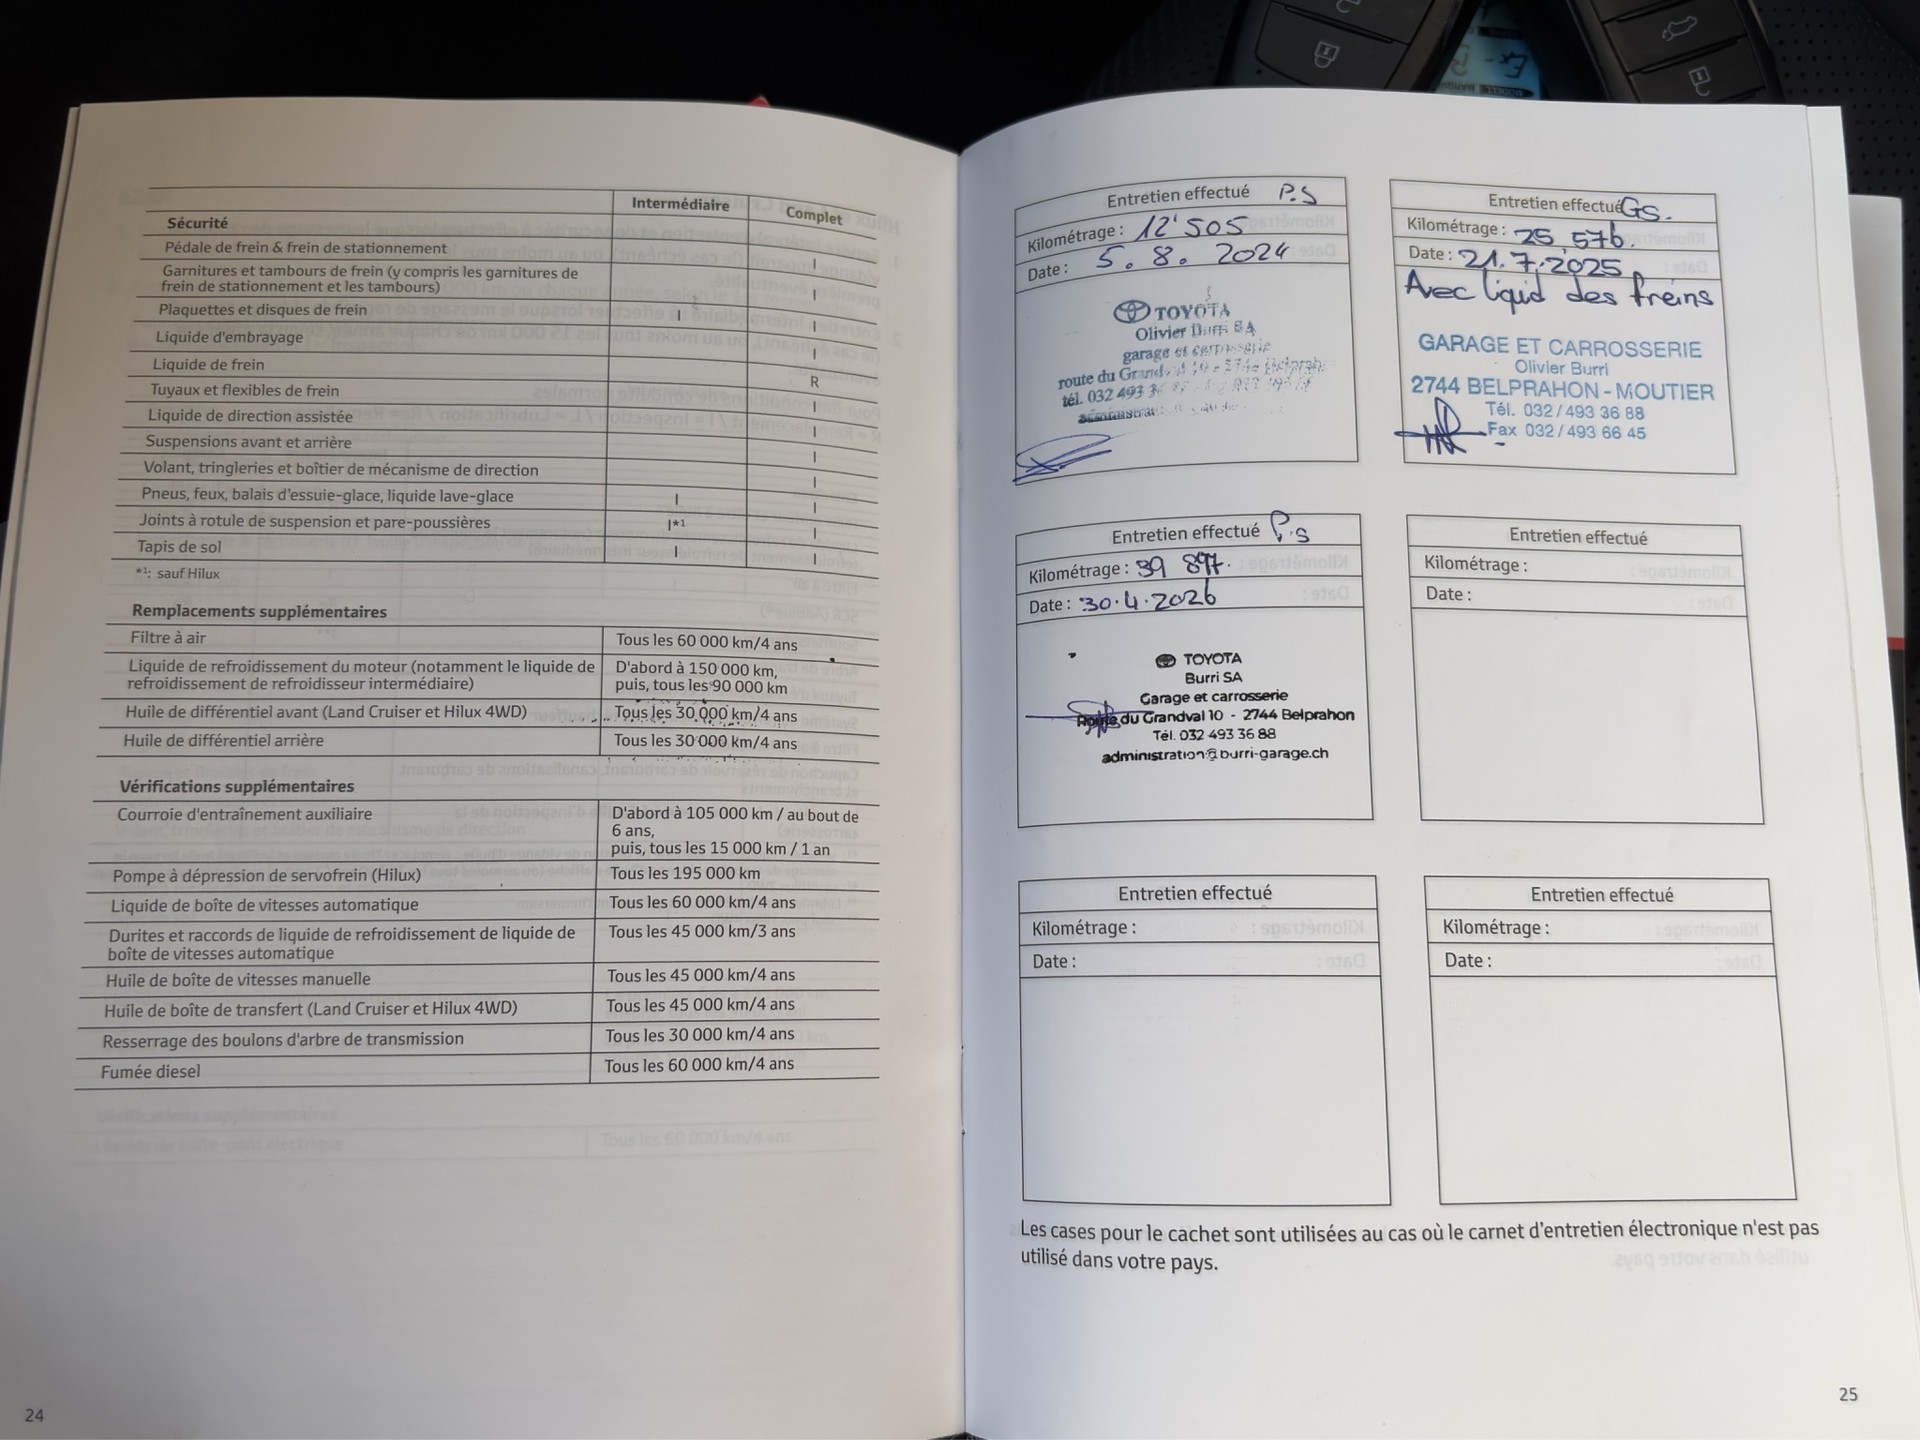 Intermédiaire Complet
Sécurité
Pédale de frein & frein de stationnement I
Garnitures et tambours de frein (y compris les garnitures de
frein de stationnement et les tambours) I
Plaquettes et disques de frein I I
Liquide d'embrayage I
Liquide de frein R
Tuyaux et flexibles de frein I
Liquide de direction assistée I
Suspensions avant et arrière I
Volant, tringleries et boîtier de mécanisme de direction I
Pneus, feux, balais d'essuie-glace, liquide lave-glace I I
Joints à rotule de suspension et pare-poussières I*1 I
Tapis de sol I I
*1: sauf Hilux
Remplacements supplémentaires
Filtre à air Tous les 60 000 km/4 ans
Liquide de refroidissement du moteur (notamment le liquide de D'abord à 150 000 km,
refroidissement de refroidisseur intermédiaire) puis, tous les 90 000 km
Huile de différentiel avant (Land Cruiser et Hilux 4WD) Tous les 30 000 km/4 ans
Huile de différentiel arrière Tous les 30 000 km/4 ans
Vérifications supplémentaires
Courroie d'entraînement auxiliaire D'abord à 105 000 km / au bout de
6 ans,
puis, tous les 15 000 km / 1 an
Pompe à dépression de servofrein (Hilux) Tous les 195 000 km
Liquide de boîte de vitesses automatique Tous les 60 000 km/4 ans
Durites et raccords de liquide de refroidissement de liquide de Tous les 45 000 km/3 ans
boîte de vitesses automatique
Huile de boîte de vitesses manuelle Tous les 45 000 km/4 ans
Huile de boîte de transfert (Land Cruiser et Hilux 4WD) Tous les 45 000 km/4 ans
Resserrage des boulons d'arbre de transmission Tous les 30 000 km/4 ans
Fumée diesel Tous les 60 000 km/4 ans
24
Entretien effectué P.S
Kilométrage : 12'505
Date : 5. 8. 2024
TOYOTA
Olivier Burri SA
garage et carrosserie
route du Grandval 10 - 2744 Belprahon
tél. 032 493 36
Entretien effectué GS.
Kilométrage : 25,576.
Date : 21.7.2025
Avec liquid des freins
GARAGE ET CARROSSERIE
Olivier Burri
2744 BELPRAHON - MOUTIER
Tél. 032 / 493 36 88
Fax 032 / 493 66 45
Entretien effectué P.S
Kilométrage : 39 897.
Date : 30.4.2026
TOYOTA
Burri SA
Garage et carrosserie
Route du Grandval 10 - 2744 Belprahon
Tél. 032 493 36 88
administration@burri-garage.ch
Entretien effectué
Kilométrage :
Date :
Entretien effectué
Kilométrage :
Date :
Entretien effectué
Kilométrage :
Date :
Les cases pour le cachet sont utilisées au cas où le carnet d'entretien électronique n'est pas
utilisé dans votre pays.
25